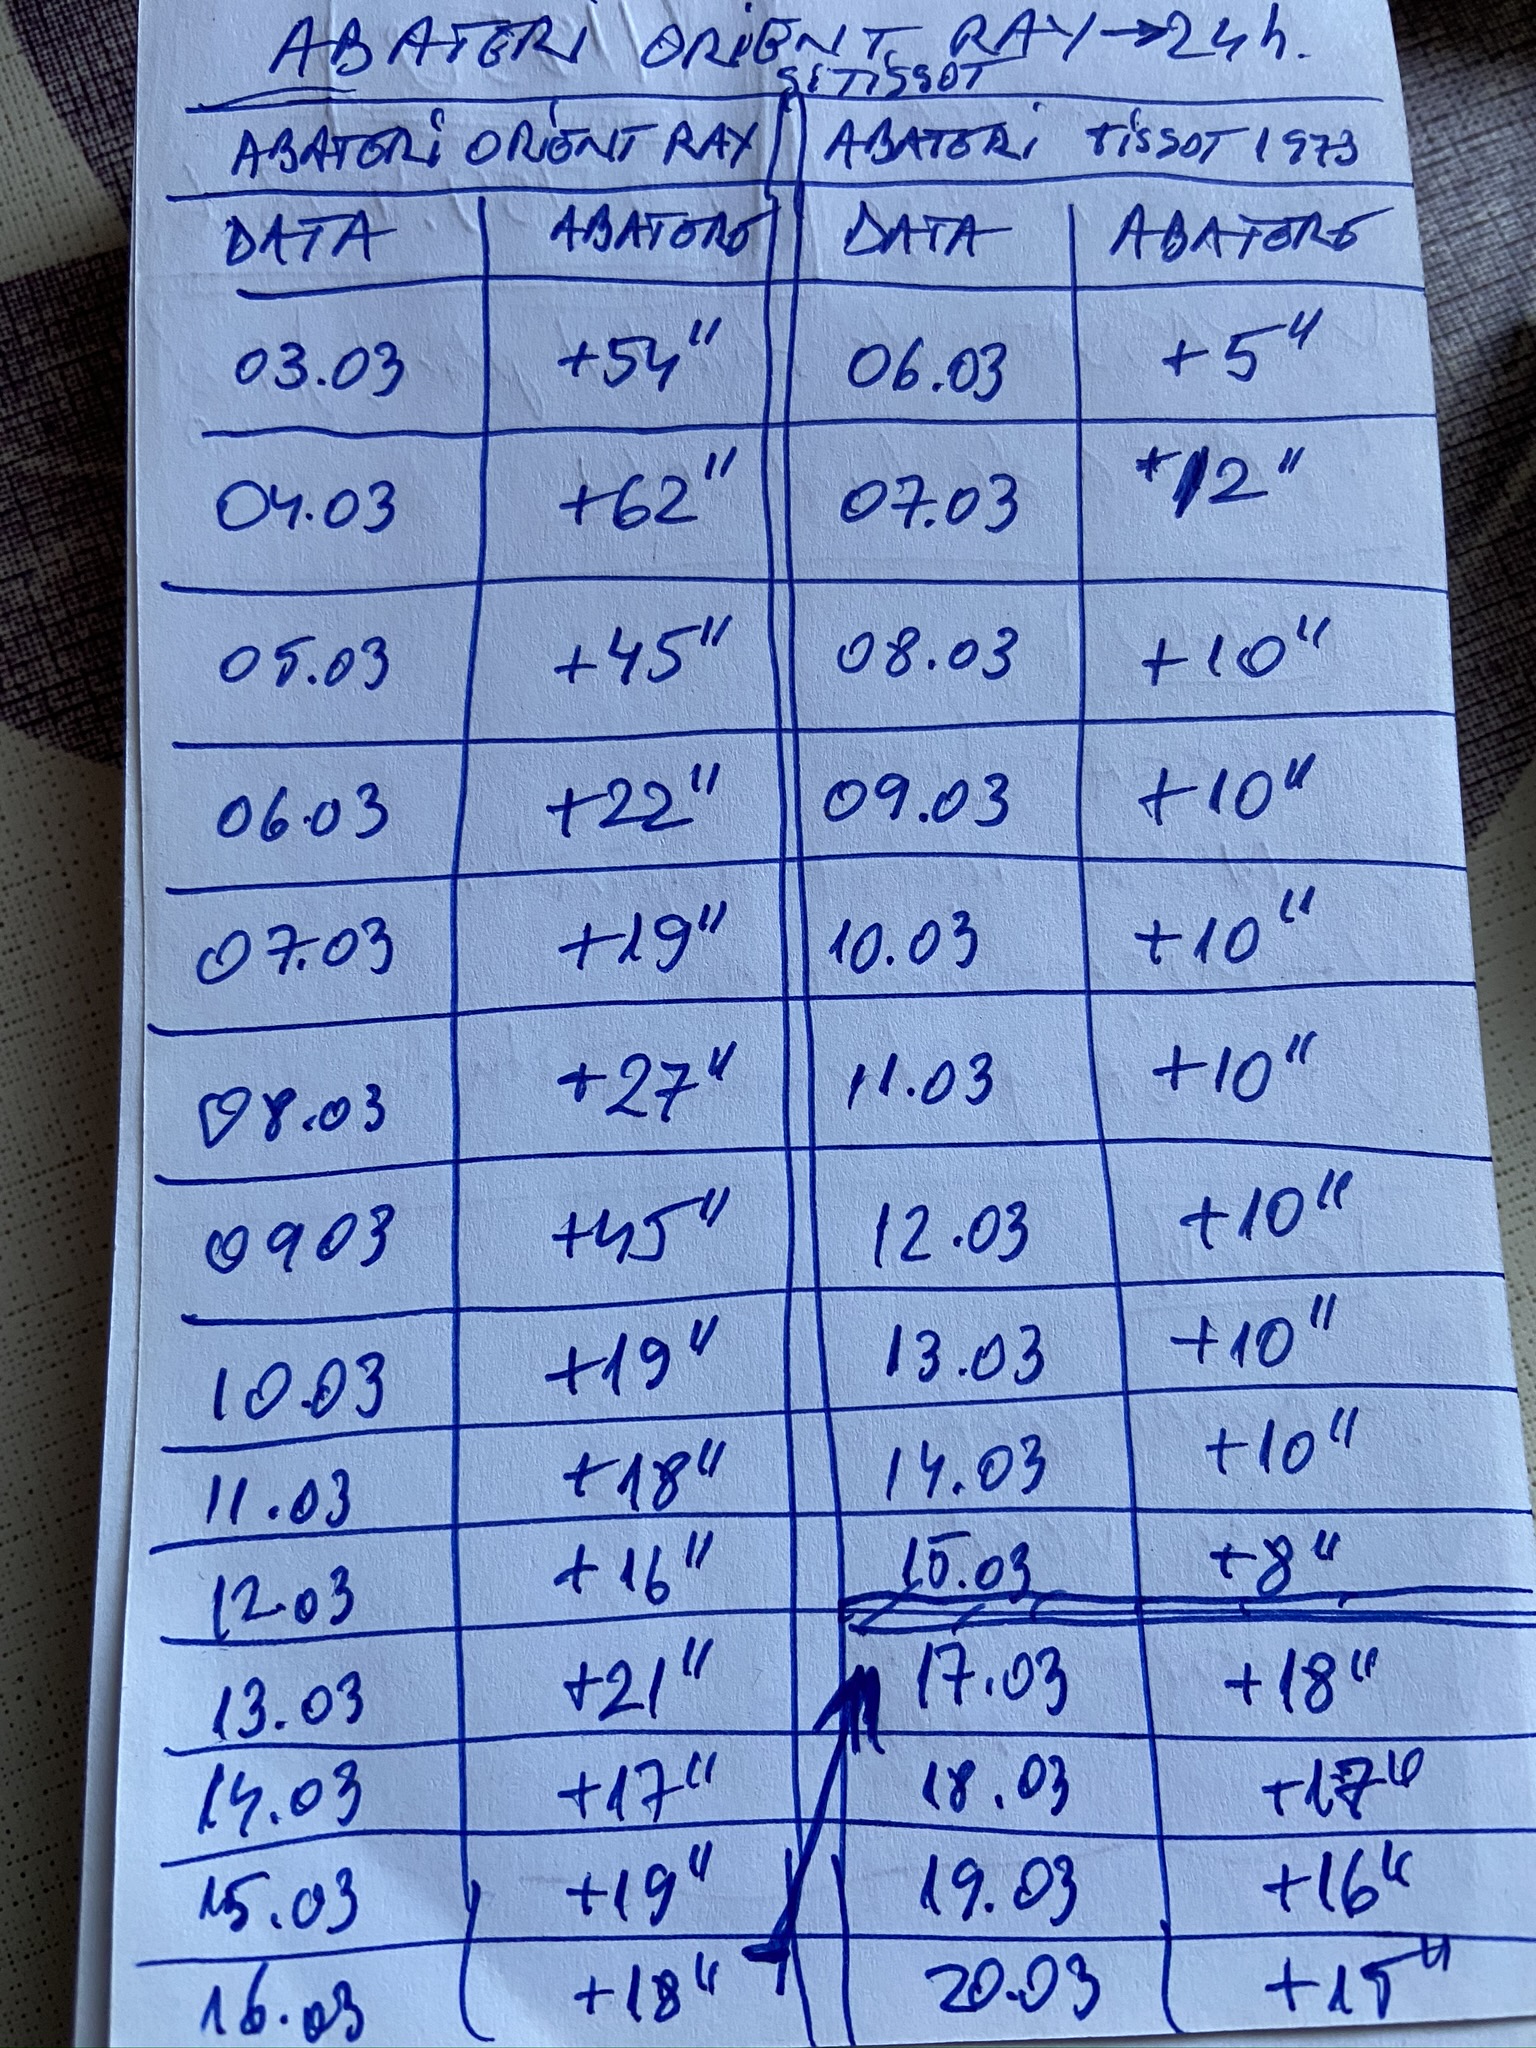 ABATERI ORIENT RAY → 24h.
SI TISSOT
ABATERI ORIENT RAY ABATERI TISSOT 1973
DATA ABATERE DATA ABATERE
03.03 +54" 06.03 +5"
04.03 +62" 07.03 +12"
05.03 +45" 08.03 +10"
06.03 +22" 09.03 +10"
07.03 +19" 10.03 +10"
08.03 +27" 11.03 +10"
0903 +45" 12.03 +10"
10.03 +19" 13.03 +10"
11.03 +18" 14.03 +10"
12.03 +16" 15.03 +8"
13.03 +21" 17.03 +18"
14.03 +17" 18.03 +17"
15.03 +19" 19.03 +16"
16.03 +18" 20.03 +15"